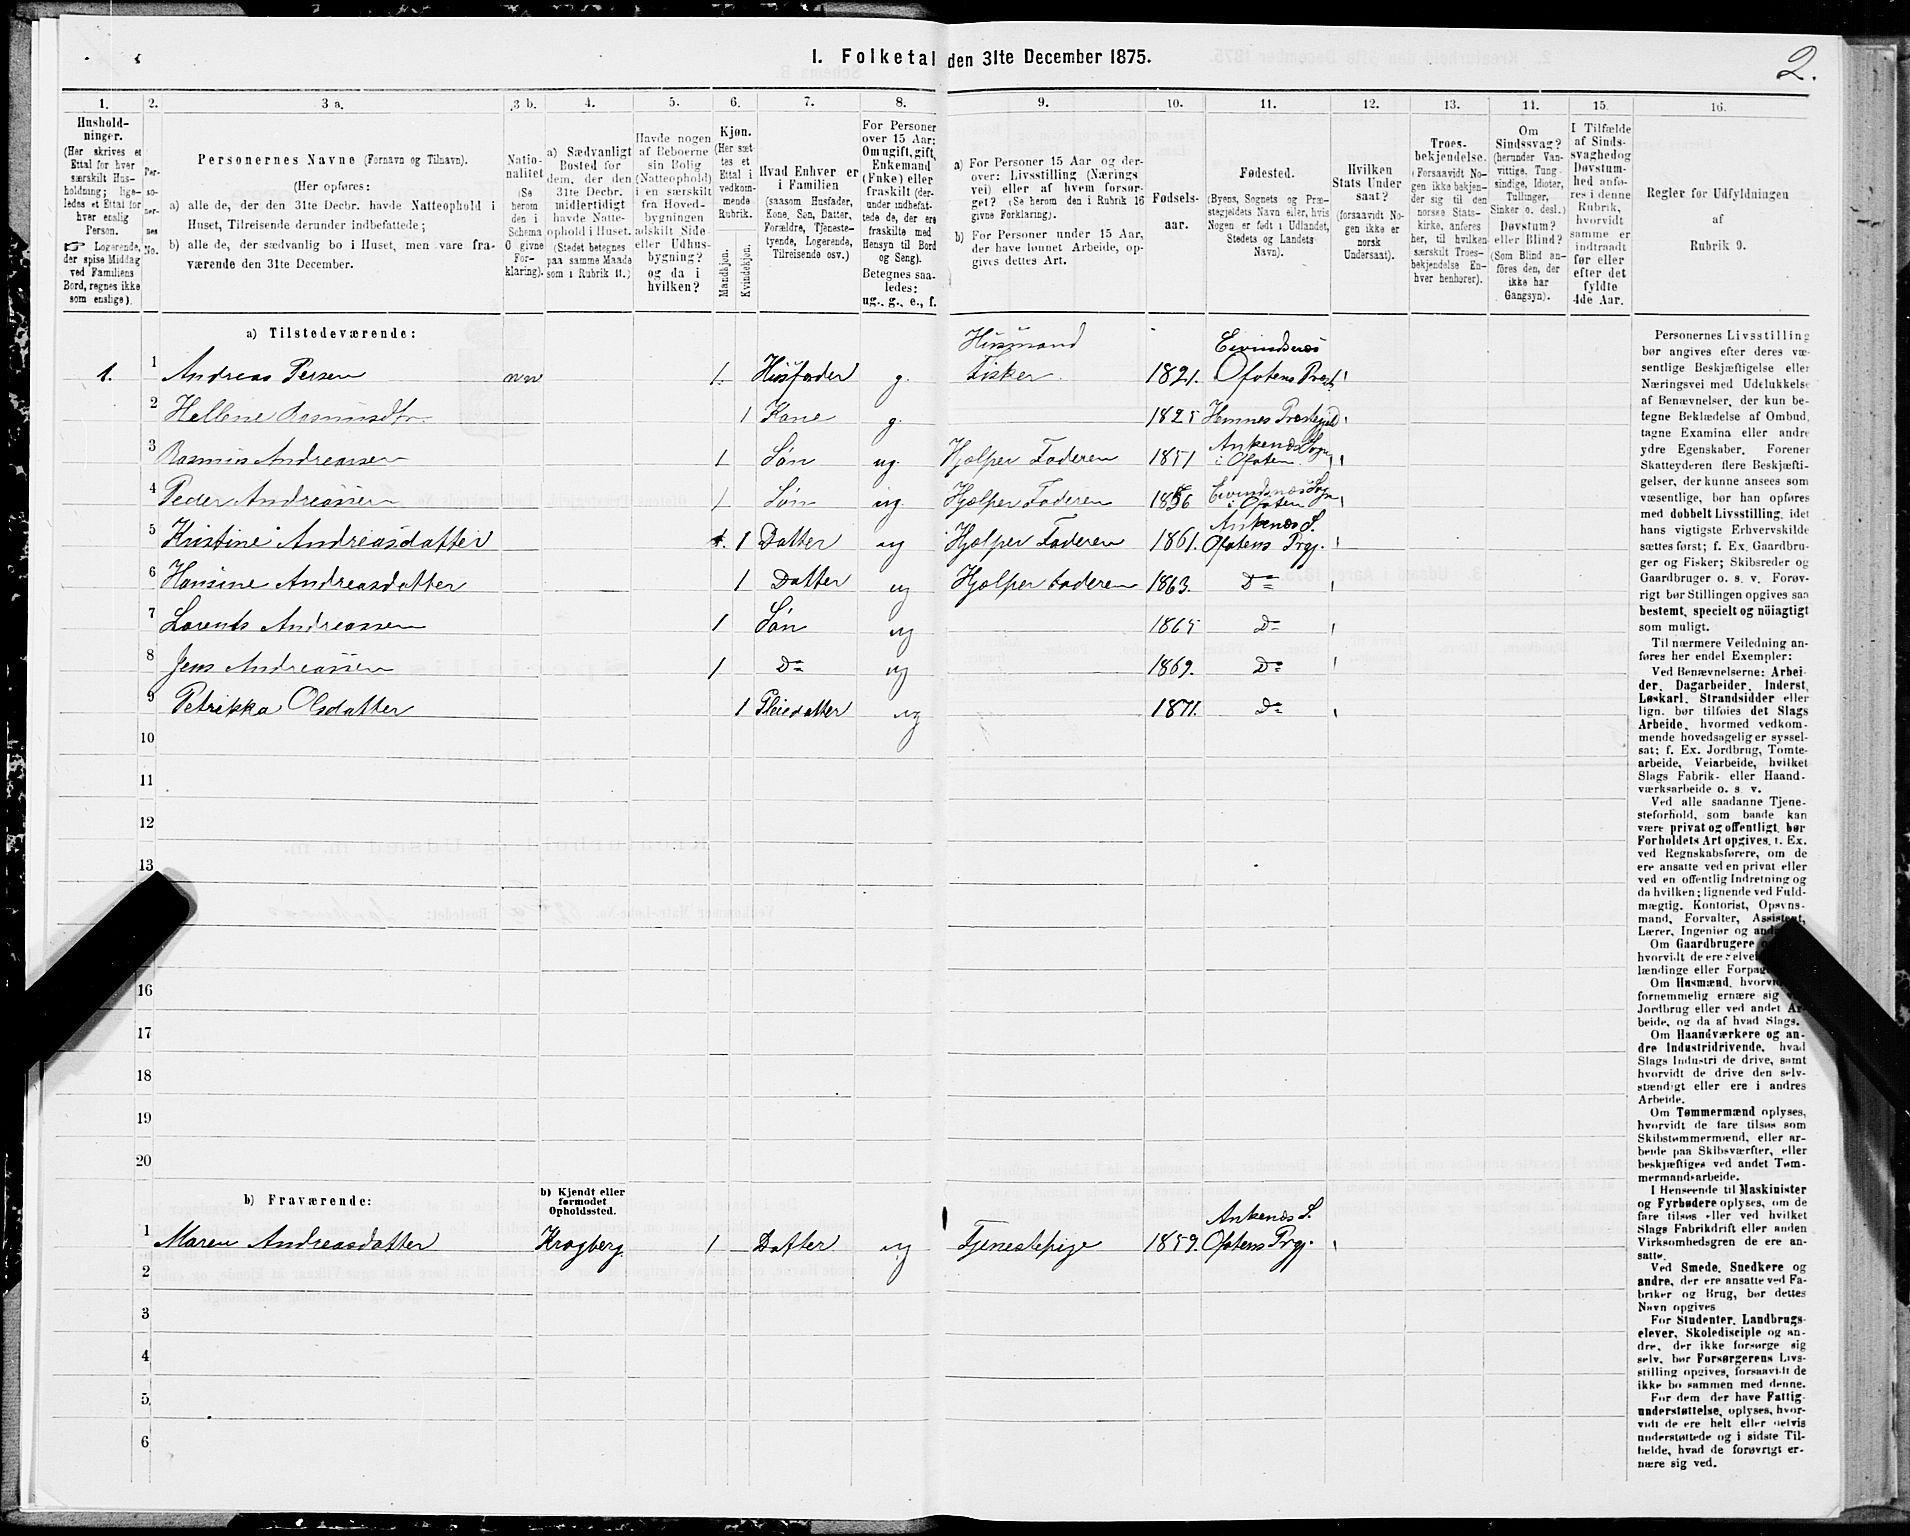 1. Folketal den 31te December 1875.
2.
1.
2.
3 a.
3 b.
4.
5.
6.
7.
8.
9.
10.
11.
12.
13.
14.
15.
16.
Hushold-
ninger.
(Her skrives et
Ettal for hver
særskilt Hus-
holdning; lige-
ledes et Ettal for
hver enslig
Person.
☞ Logerende,
der spise Middag
ved Familiens
Bord, regnes ikke
som enslige).
Per-
so-
ner-
nes
No.
Personernes Navne (Fornavn og Tilnavn).
(Her opføres:
a) alle de, der den 31te Decbr. havde Natteophold i
Huset, Tilreisende derunder indbefattede;
b) alle de, der sædvanlig bo i Huset, men vare fra-
værende den 31te December.
Natio-
nalitet
(Se
herom
den i
Schema
C givne
For-
klaring).
a) Sædvanligt
Bosted for
dem, der den
31te Decbr.
midlertidigt
havde Natte-
ophold i Huset.
(Stedet betegnes
paa samme Maade
som i Rubrik 11.)
Havde nogen
af Beboerne
sin Bolig
(Natteophold)
i en særskilt
fra Hoved-
bygningen
adskilt Side-
eller Udhus-
bygning?
og da i
hvilken?
Kjøn.
(Her sæt-
tes et
Ettal i
vedkom-
mende
Rubrik.
Mandkjøn.
Kvindekjøn.
Hvad Enhver er
i Familien
(saasom Husfader,
Kone, Søn, Datter,
Forældre, Tjeneste-
tyende, Logerende,
Tilreisende osv.)
For Personer
over 15 Aar:
Om ugift, gift,
Enkemand
(Enke) eller
fraskilt (der-
under indbefat-
tede de, der ere
fraskilte med
Hensyn til Bord
og Seng).
Betegnes saa-
ledes:
ug., g., e., f.
a) For Personer 15 Aar og der-
over: Livsstilling (Nærings
vei) eller af hvem forsør-
get? (Se herom den i Rubrik 16
givne Forklaring).
b) For Personer under 15 Aar,
der have lønnet Arbeide, op-
gives dettes Art.
Fødsels-
aar.
Fødested.
(Byens, Sognets og Præ-
stegjeldets Navn eller, hvis
Nogen er født i Udlandet,
Stedets og Landets
Navn).
Hvilken
Stats Under
saat?
(forsaavidt No-
gen ikke er
norsk
Undersaat).
Troes-
bekjendelse.
(Forsaavidt No-
gen ikke bekjen-
der sig til den
norske Stats-
kirke, anføres
her, til hvilken
særskilt Troes-
bekjendelse En-
hver henhører).
Om
Sindssvag?
(herunder Van-
vittige, Tung-
sindige, Idioter,
Tullinger,
Sinker o. desl.)
Døvstum?
eller Blind?
(Som Blind an-
føres den, der
ikke har
Gangsyn).
I Tilfælde
af Sinds-
svaghed og
Døvstum-
hed anfø-
res i denne
Rubrik,
hvorvidt
samme er
indtraadt
før eller
efter det
fyldte
4de Aar.
Regler for Udfyldningen
af
Rubrik 9.
a) Tilstedeværende:
1. 1 Andreas Persen nn 1. Husfader g. Husmand Fisker. 1821. Eivindsnæs Ofotens Præst
2 Hellene Rasmusdtr. 1 Kone g. 1825 Hemnes Præstegjeld
3 Rasmus Andreassen 1 Søn ug. Hjælper Faderen 1851 Ankenæs Sogn i Ofoten
4 Peder Andreassen 1 Søn ug. Hjælper Faderen 1856 Eivindsnæs Sogn i Ofoten
5 Kristine Andreasdatter 1 Datter ug Hjælper Faderen 1861. Ankenæs S. Ofotens Prgj.
6 Hansine Andreasdatter 1 Datter ug Hjælper Faderen 1863. Do
7 Lorents Andreassen 1 Søn ug 1865 Do
8 Jens Andreassen 1 Do ug 1869. Do
9 Petrikka Olsdatter 1 Pleiedatter ug 1871. Do
10
11
12
13
16
17
18
19
20
b) Fraværende:
b) Kjendt eller
formodet
Opholdssted.
1 Maren Andreasdatter Kragberg 1 Datter ug Tjenestepige 1859. Ankenæs S. Ofotens Prgj.
2
3
4
5
6
Personernes Livsstilling
bør angives efter deres væ-
sentlige Beskjæftigelse eller
Næringsvei med Udelukkelse
af Benævnelser, der kun be-
tegne Beklædelse af Ombud,
tagne Examina eller andre
ydre Egenskaber. Forener
Skatteyderen flere Beskjæfti-
gelser, der kunne ansees som
væsentlige, bør han opføres
med dobbelt Livsstilling, idet
hans vigtigste Erhvervskilde
sættes først; f. Ex. Gaardbru-
ger og Fisker; Skibsreder og
Gaardbruger o. s. v. Forøv-
rigt bør Stillingen opgives saa
bestemt, specielt og nöiagtigt
som muligt.
Til nærmere Veiledning an-
føres her endel Exempler:
Ved Benævnelserne: Arbei-
der, Dagarbeider, Inderst,
Løskarl, Strandsidder eller
lign. bør tilføies det Slags
Arbeide, hvormed vedkom-
mende hovedsagelig er syssel-
sat; f. Ex. Jordbrug, Tomte-
arbeide, Veiarbeide, hvilket
Slags Fabrik- eller Haand-
værksarbeide o. s. v.
Ved alle saadanne Tjene-
steforhold, som baade kan
være privat og offentligt, bør
Forholdets Art opgives, f. Ex.
ved Regnskabsførere, om de
ere ansatte ved en privat eller
ved en offentlig Indretning og
da hvilken; lignende ved Fuld-
mægtig, Kontorist, Opsyns-
mand, Forvalter, Assistent,
Lærer, Ingeniør og
Om Gaardbrugere
hvorvidt de ere
lændinge eller
Om Husmænd,
fornemmelig ernære sig
Jordbrug eller ved andet Ar-
beide, og da af hvad Slags.
Om Haandværkere og an-
dre Industridrivende, hvad
Slags Industri de drive, samt
hvorvidt de drive den selv-
stændigt eller ere i andres
Arbeide.
Om Tømmermænd oplyses,
hvorvidt de fare tilsøs som
Skibstømmermænd, eller ar-
beide paa Skibsværfter, eller
beskjæftiges ved andet Tøm-
mermandsarbeide.
I Henseende til Maskinister
og Fyrbødere oplyses, om de
fare tilsøs eller ved hvilket
Slags Fabrikdrift eller anden
Virksomhedsgren de ere an-
satte.
Ved Smede, Snedkere og
andre, der ere ansatte ved Fa-
briker og Brug, bør dettes
Navn opgives
For Studenter, Landbrugs-
elever, Skoledisciple og an-
dre, der ikke forsørge sig
selv, bør Forsørgerens Livs-
stilling opgives, forsaavidt de
ikke bo sammen med denne.
For dem, der have Fattig-
understøttelse, oplyses, hvor-
vidt de ere helt eller delvis
understøttede og i sidste Til-
fælde, hvad de forøvrigt er-
nære sig ved.